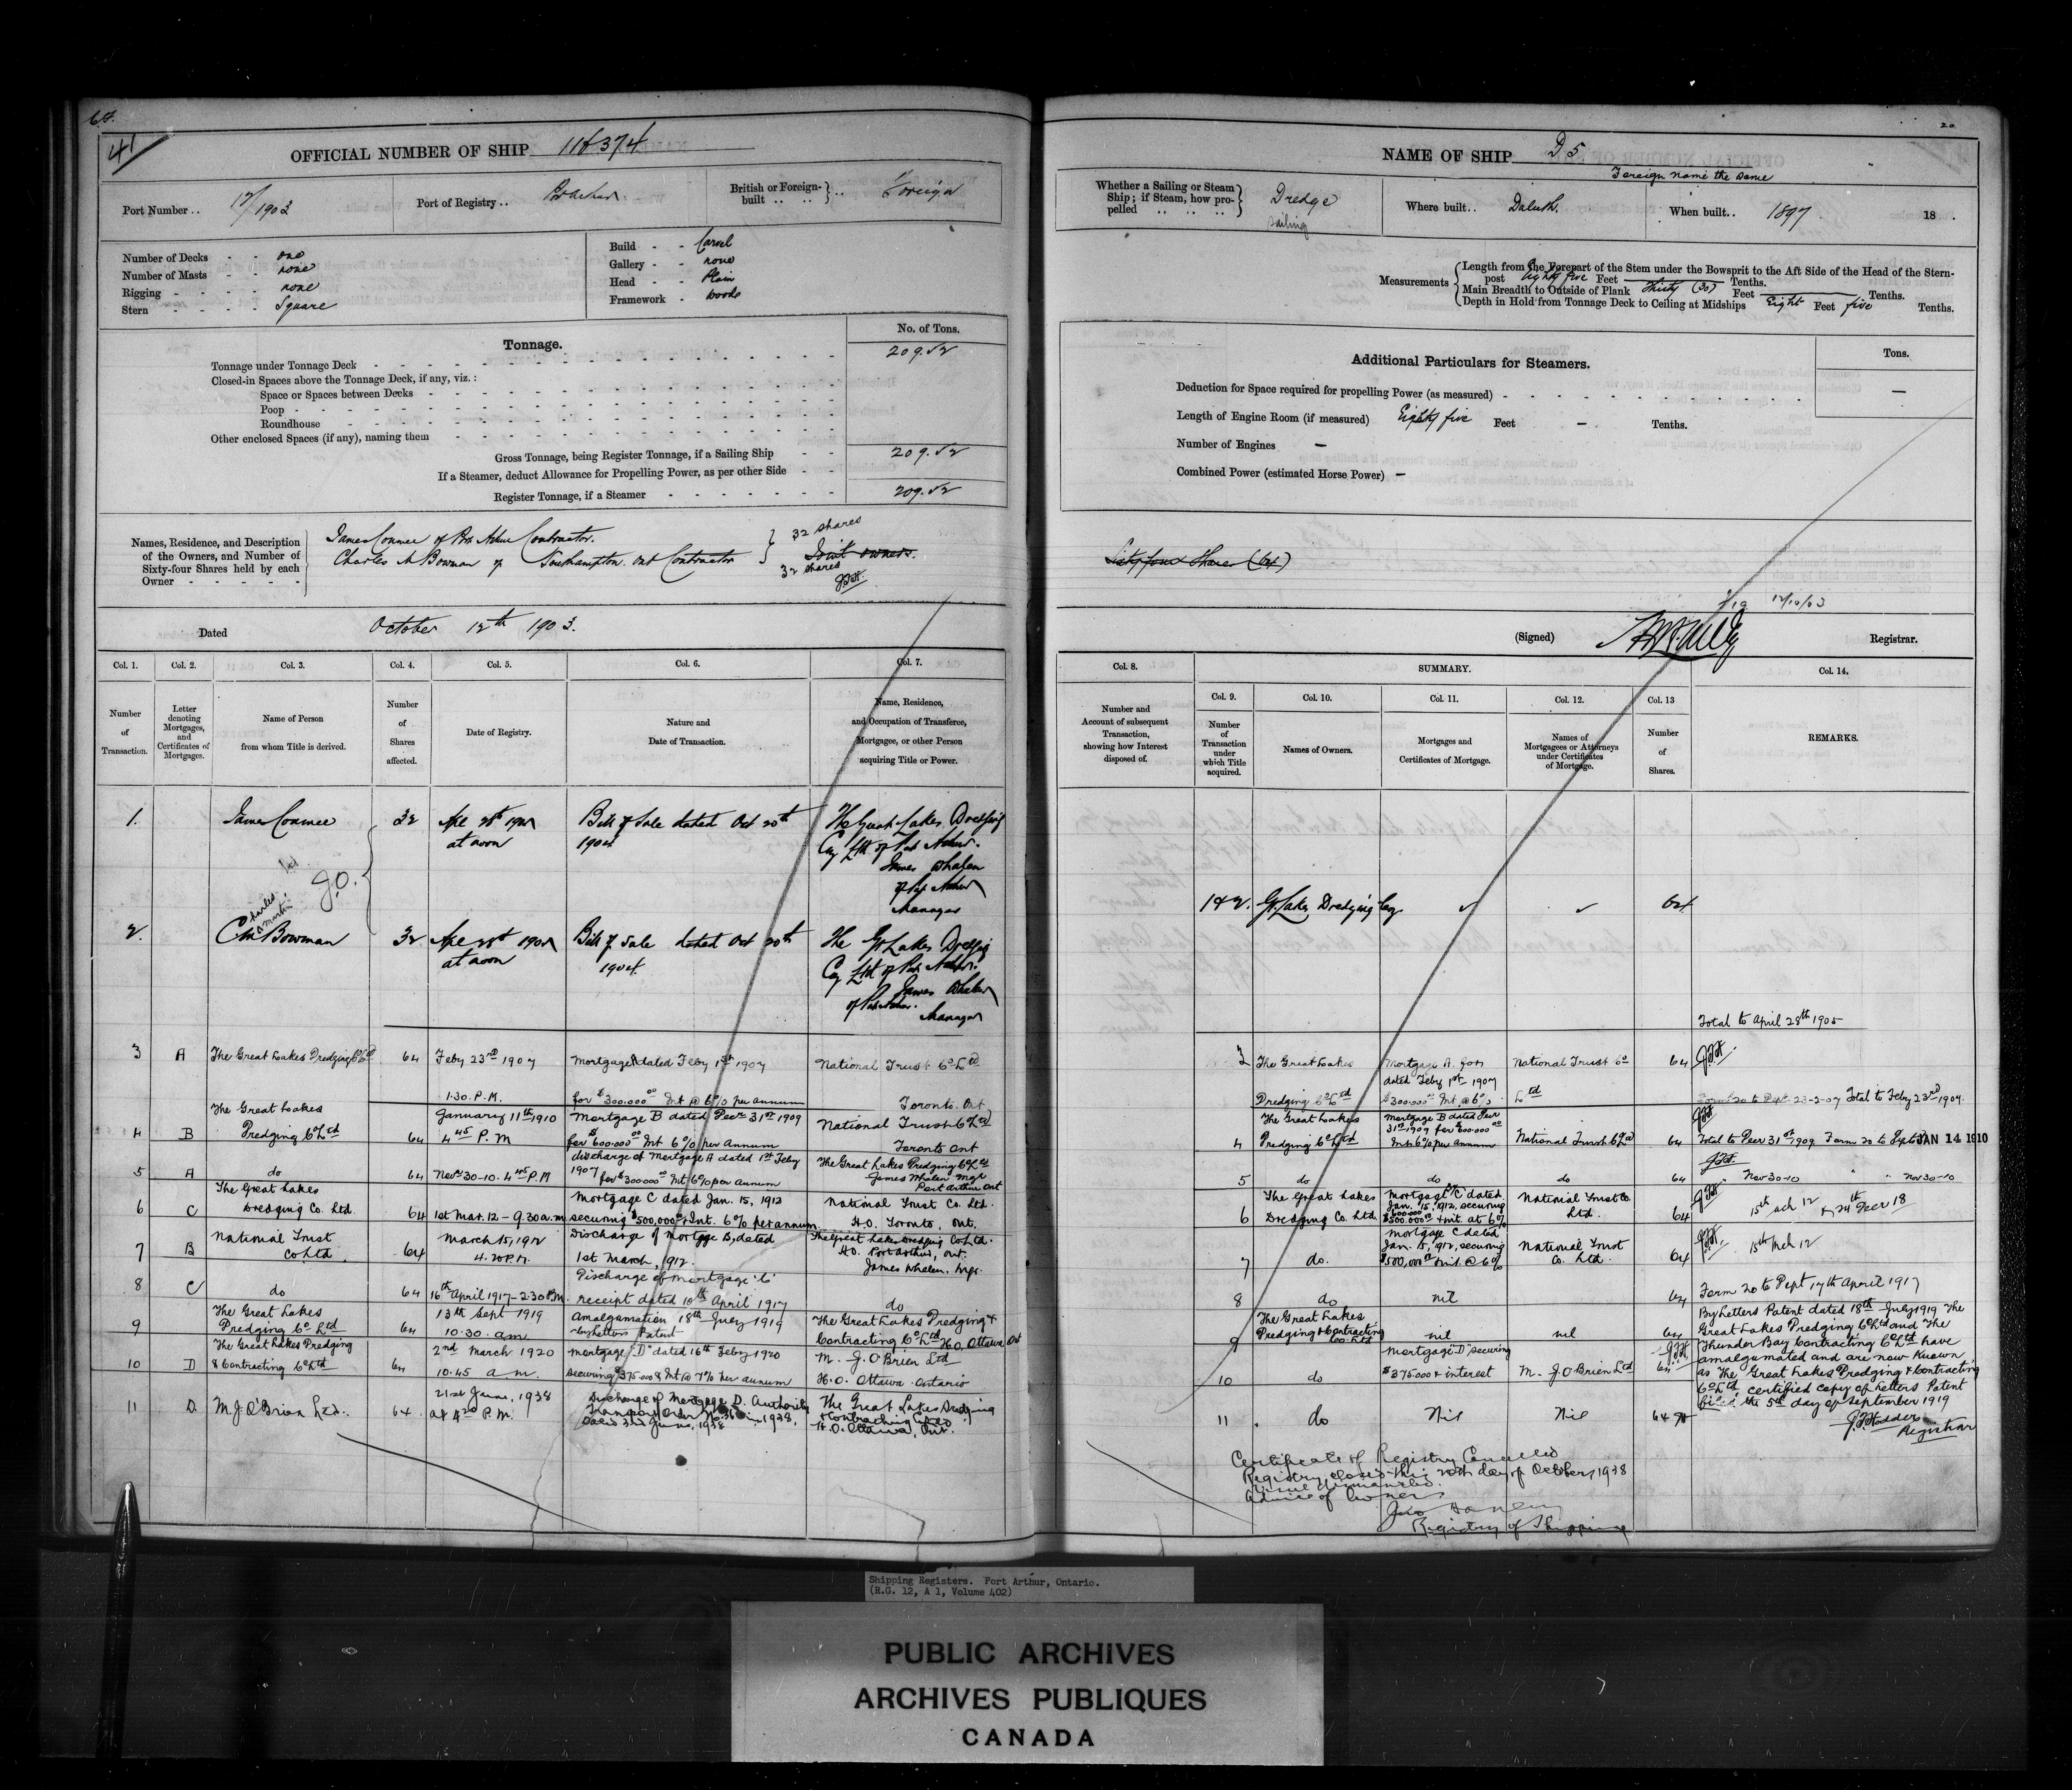 41
OFFICIAL NUMBER OF SHIP 116374
Port Number .. 12/1903
Port of Registry ..
British or Foreign-built .. .. } .. Foreign
Number of Decks - - one
Number of Masts - - none
Rigging - - - - none
Stern - - - - Square
Build - - Carvel
Gallery - - none
Head - - Plain
Framework - Wood
Tonnage.
No. of Tons.
Tonnage under Tonnage Deck 209.52
Closed-in Spaces above the Tonnage Deck, if any, viz.:
Space or Spaces between Decks
Poop
Roundhouse
Other enclosed Spaces (if any), naming them
Gross Tonnage, being Register Tonnage, if a Sailing Ship 209.52
If a Steamer, deduct Allowance for Propelling Power, as per other Side
Register Tonnage, if a Steamer 209.52
Names, Residence, and Description of the Owners, and Number of Sixty-four Shares held by each Owner
James Conmee of Port Arthur Contractor. 32 shares
Charles M Bowman of Southampton. Ont Contractor 32 shares
Joint owners.
Dated October 12th 1903.
Col. 1. Col. 2. Col. 3. Col. 4. Col. 5. Col. 6. Col. 7.
Number of Transaction.
Letter denoting Mortgages, and Certificates of Mortgages.
Name of Person from whom Title is derived.
Number of Shares affected.
Date of Registry.
Nature and Date of Transaction.
Name, Residence, and Occupation of Transferee, Mortgagee, or other Person acquiring Title or Power.
1. James Conmee 32 Apl 28th 1905 at noon Bill of Sale dated Oct 20th 1904 The Great Lakes Dredging Coy Ltd of Port Arthur. James Whalen of Port Arthur Manager
J.O.
2. Charles Martin Bowman 32 Apl 28th 1905 at noon Bill of Sale dated Oct 20th 1904. The Gt Lakes Dredging Coy Ltd of Port Arthur. James Whalen of Port Arthur. Manager
3 A The Great Lakes Dredging Co Ltd 64 Feby 23rd 1907 1.30 P.M. Mortgage A dated Feby 1st 1907 for $300.000 00 Int @ 6% per annum National Trust Co Ltd Toronto. Ont
4 B The Great Lakes Dredging Co Ltd 64 January 11th 1910 4 45 P.M Mortgage B dated Decr 31st 1909 for $600.000 00 Int 6% per annum National Trust Co Ltd Toronto Ont
5 A do 64 Novr 30-10. 4 45 P.M discharge of Mortgage A dated 1st Feby 1907 for $300.000 00 Int 6% per annum The Great Lakes Dredging Co Ltd James Whalen Mgr Port Arthur Ont
6 C The Great Lakes Dredging Co. Ltd. 64 1st Mar. 12 - 9.30 a.m Mortgage C dated Jan. 15, 1912 securing $500,000 00 & Int. 6% per annum. National Trust Co. Ltd. H.O. Toronto, Ont.
7 B National Trust Co. Ltd. 64 March 15, 1912 4.20 P.M. Discharge of Mortgage B, dated 1st March, 1912. The Great Lakes Dredging Co. Ltd. H.O. Port Arthur, Ont. James Whalen, Mgr.
8 C do 64 16th April 1917 - 2.30 P.M. Discharge of mortgage "C" receipt dated 10th April 1917 do
9 The Great Lakes Dredging Co Ltd 64 13th Sept 1919 10.30. am Amalgamation 18th July 1919 by Letters Patent The Great Lakes Dredging & Contracting Co Ltd H.O. Ottawa Ont
10 D The Great Lakes Dredging & Contracting Co Ltd 64 2nd March 1920 10.45 am. Mortgage "D" dated 16th Feby 1920 securing $375.000 & Int @ 7% per annum M. J. O'Brien Ltd H.O. Ottawa. Ontario
11 D. M.J. O'Brien Ltd. 64. 21st June, 1938 at P.M. Discharge of Mortgage D. Authority dated 3rd June, 1938 The Great Lakes Dredging & Contracting H.O. Ottawa, Ont.
20
NAME OF SHIP D 5
Foreign name the same
Whether a Sailing or Steam Ship; if Steam, how propelled .. .. .. } Dredge sailing
Where built .. Duluth.
When built .. 1897 18 .
Measurements
Length from the Forepart of the Stem under the Bowsprit to the Aft Side of the Head of the Stern-post Eighty five Feet Tenths.
Main Breadth to Outside of Plank Thirty (30) Feet Tenths.
Depth in Hold from Tonnage Deck to Ceiling at Midships Eight Feet five Tenths.
Additional Particulars for Steamers.
Tons.
Deduction for Space required for propelling Power (as measured) —
Length of Engine Room (if measured) Eighty five Feet — Tenths.
Number of Engines —
Combined Power (estimated Horse Power) —
Sixty four Shares (64)
12/10/03
(Signed) Registrar.
Col. 8. SUMMARY. Col. 14.
Col. 9. Col. 10. Col. 11. Col. 12. Col. 13
Number and Account of subsequent Transaction, showing how Interest disposed of.
Number of Transaction under which Title acquired.
Names of Owners.
Mortgages and Certificates of Mortgage.
Names of Mortgagees or Attorneys under Certificates of Mortgage.
Number of Shares.
REMARKS.
1 & 2. Gt. Lakes Dredging Coy 64
Total to April 28th 1905
3 The Great Lakes Dredging Co Ltd Mortgage A. for dated Feby 1st 1907 $300.000 Int. @ 6% National Trust Co Ltd 64 Form 20 to Dept. 23-2-07 Total to Feby 23rd 1907.
4 The Great Lakes Dredging Co Ltd Mortgage B dated Decr 31st 1909 for $600.000 00 Int 6% per annum National Trust Co Ltd 64 Total to Decr 31st 1909 Form 20 to Dept JAN 14 1910
5 do do do 64 " Nov 30-10 " " Nov 30-10
6 The Great Lakes Dredging Co. Ltd. Mortgage C dated Jan. 15, 1912, securing $500.000 00 & int. at 6% National Trust Co. Ltd. 64 15th Mch 12
7 do. Mortgage C dated Jan. 15, 1912, securing $500,000 00 & int. @ 6% National Trust Co. Ltd. 64 15th Mch 12
8 do nil 64 Form 20 to Dept 17th April 1917
9 The Great Lakes Dredging & Contracting Co Ltd nil nil 64
By Letters Patent dated 18th July 1919 The
Great Lakes Dredging Co Ltd and The
Thunder Bay Contracting Co Ltd have
amalgamated and are now known
as The Great Lakes Dredging & Contracting
Co Ltd. certified copy of Letters Patent
filed the 5th day of September 1919
J.F. Hodder
Registrar
10 do Mortgage "D" securing $375.000 & interest M. J. O'Brien Ltd 64
11 do Nil Nil 64
Certificate of Registry Cancelled
Registry closed this 20th day of October, 1938
Advice of Owners
Registry of Shipping
Shipping Registers. Port Arthur, Ontario.
(R.G. 12, A 1, Volume 402)
PUBLIC ARCHIVES
ARCHIVES PUBLIQUES
CANADA